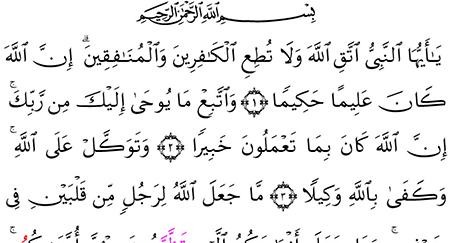 بِسْمِ ٱللَّهِ ٱلرَّحْمَٰنِ ٱلرَّحِيمِ
يَٰٓأَيُّهَا ٱلنَّبِىُّ ٱتَّقِ ٱللَّهَ وَلَا تُطِعِ ٱلْكَٰفِرِينَ وَٱلْمُنَٰفِقِينَ ۗ إِنَّ ٱللَّهَ
كَانَ عَلِيمًا حَكِيمًا ﴿١﴾ وَٱتَّبِعْ مَا يُوحَىٰٓ إِلَيْكَ مِن رَّبِّكَ ۚ
إِنَّ ٱللَّهَ كَانَ بِمَا تَعْمَلُونَ خَبِيرًا ﴿٢﴾ وَتَوَكَّلْ عَلَى ٱللَّهِ ۚ
وَكَفَىٰ بِٱللَّهِ وَكِيلًا ﴿٣﴾ مَّا جَعَلَ ٱللَّهُ لِرَجُلٍ مِّن قَلْبَيْنِ فِى